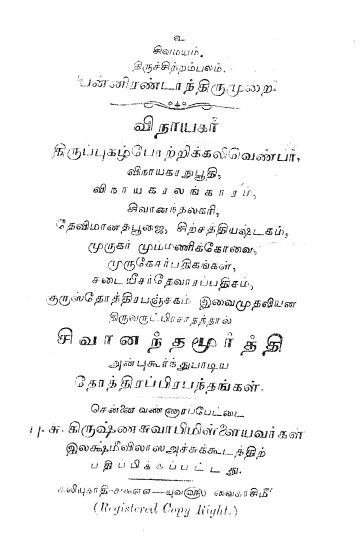 உ
சிவமயம்.
திருச்சிற்றம்பலம்.
பன்னிரண்டாந்திருமுறை
விநாயகர்
திருப்புகழ்போற்றிக்கலிவெண்பா,
விநாயகரநுபூதி,
விநாயகரலங்காரம்,
சிவானந்தலகரி,
தேவிமானதபூஜை, சிற்சத்தியஷ்டகம்,
முருகர் மும்மணிக்கோவை,
முருகேசர்பதிகங்கள்,
சடையீசர்தேவாரப்பதிகம்,
குருஸ்தோத்திரபஞ்சகம் இவைமுதலியன
திருவருட்பிரசாதத்தால்
சிவானந்தமூர்த்தி
அன்புகூர்ந்துபாடிய
தோத்திரப்பிரபந்தங்கள்.
சென்னை வண்ணாரப்பேட்டை
பு-சு. கிருஷ்ணசுவாமிபிள்ளையவர்கள்
இலக்ஷ்மீவிலாஸ அச்சுக்கூடத்திற்
பதிப்பிக்கப்பட்டது.
கலியுகாதி யுவ வைகாசிமீ
(Registered Copy Right.)